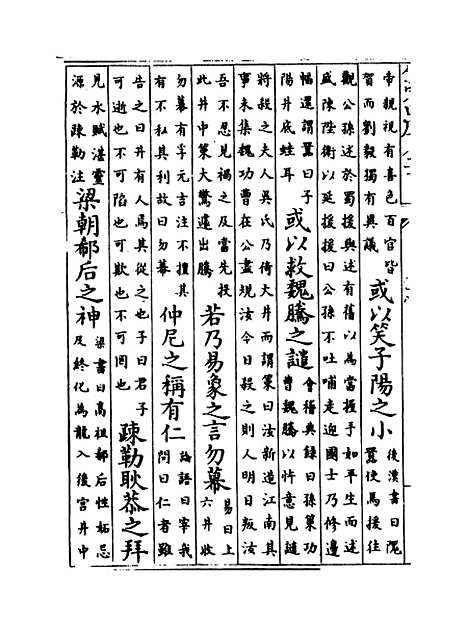 帝親視有喜色百官皆
賀而劉毅獨有異議
或以笑子陽之小
後漢書曰隗
囂使馬援往
觀公孫述於蜀援與述有舊以為當握手如平生而述
盛陳陛衛以延援援曰公孫不吐哺走迎國士乃修邊
幅還謂囂曰子
陽井底蛙耳
或以救魏騰之譴
會稽典錄曰孫策功
曹魏騰以忤意見譴
將殺之夫人吳氏乃倚大井而謂策曰汝新造江南其
事未集魏功曹在公盡規汝今日殺之則人明日叛汝
吾不忍見禍之及當先投
此井中策大驚遽出騰
若乃易象之言勿幕
易曰上
六井收
勿幕有孚元吉注不擅其
有不私其利故曰勿幕
仲尼之稱有仁
論語曰宰我
問曰仁者雖
告之曰井有人焉其從之也子曰君子
可逝也不可陷也可欺也不可罔也
疎勒耿恭之拜
見水賦湛靈
源於疎勒注
梁朝郗后之神
梁書曰高祖郗后性妬忌
及終化為龍入後宮井中